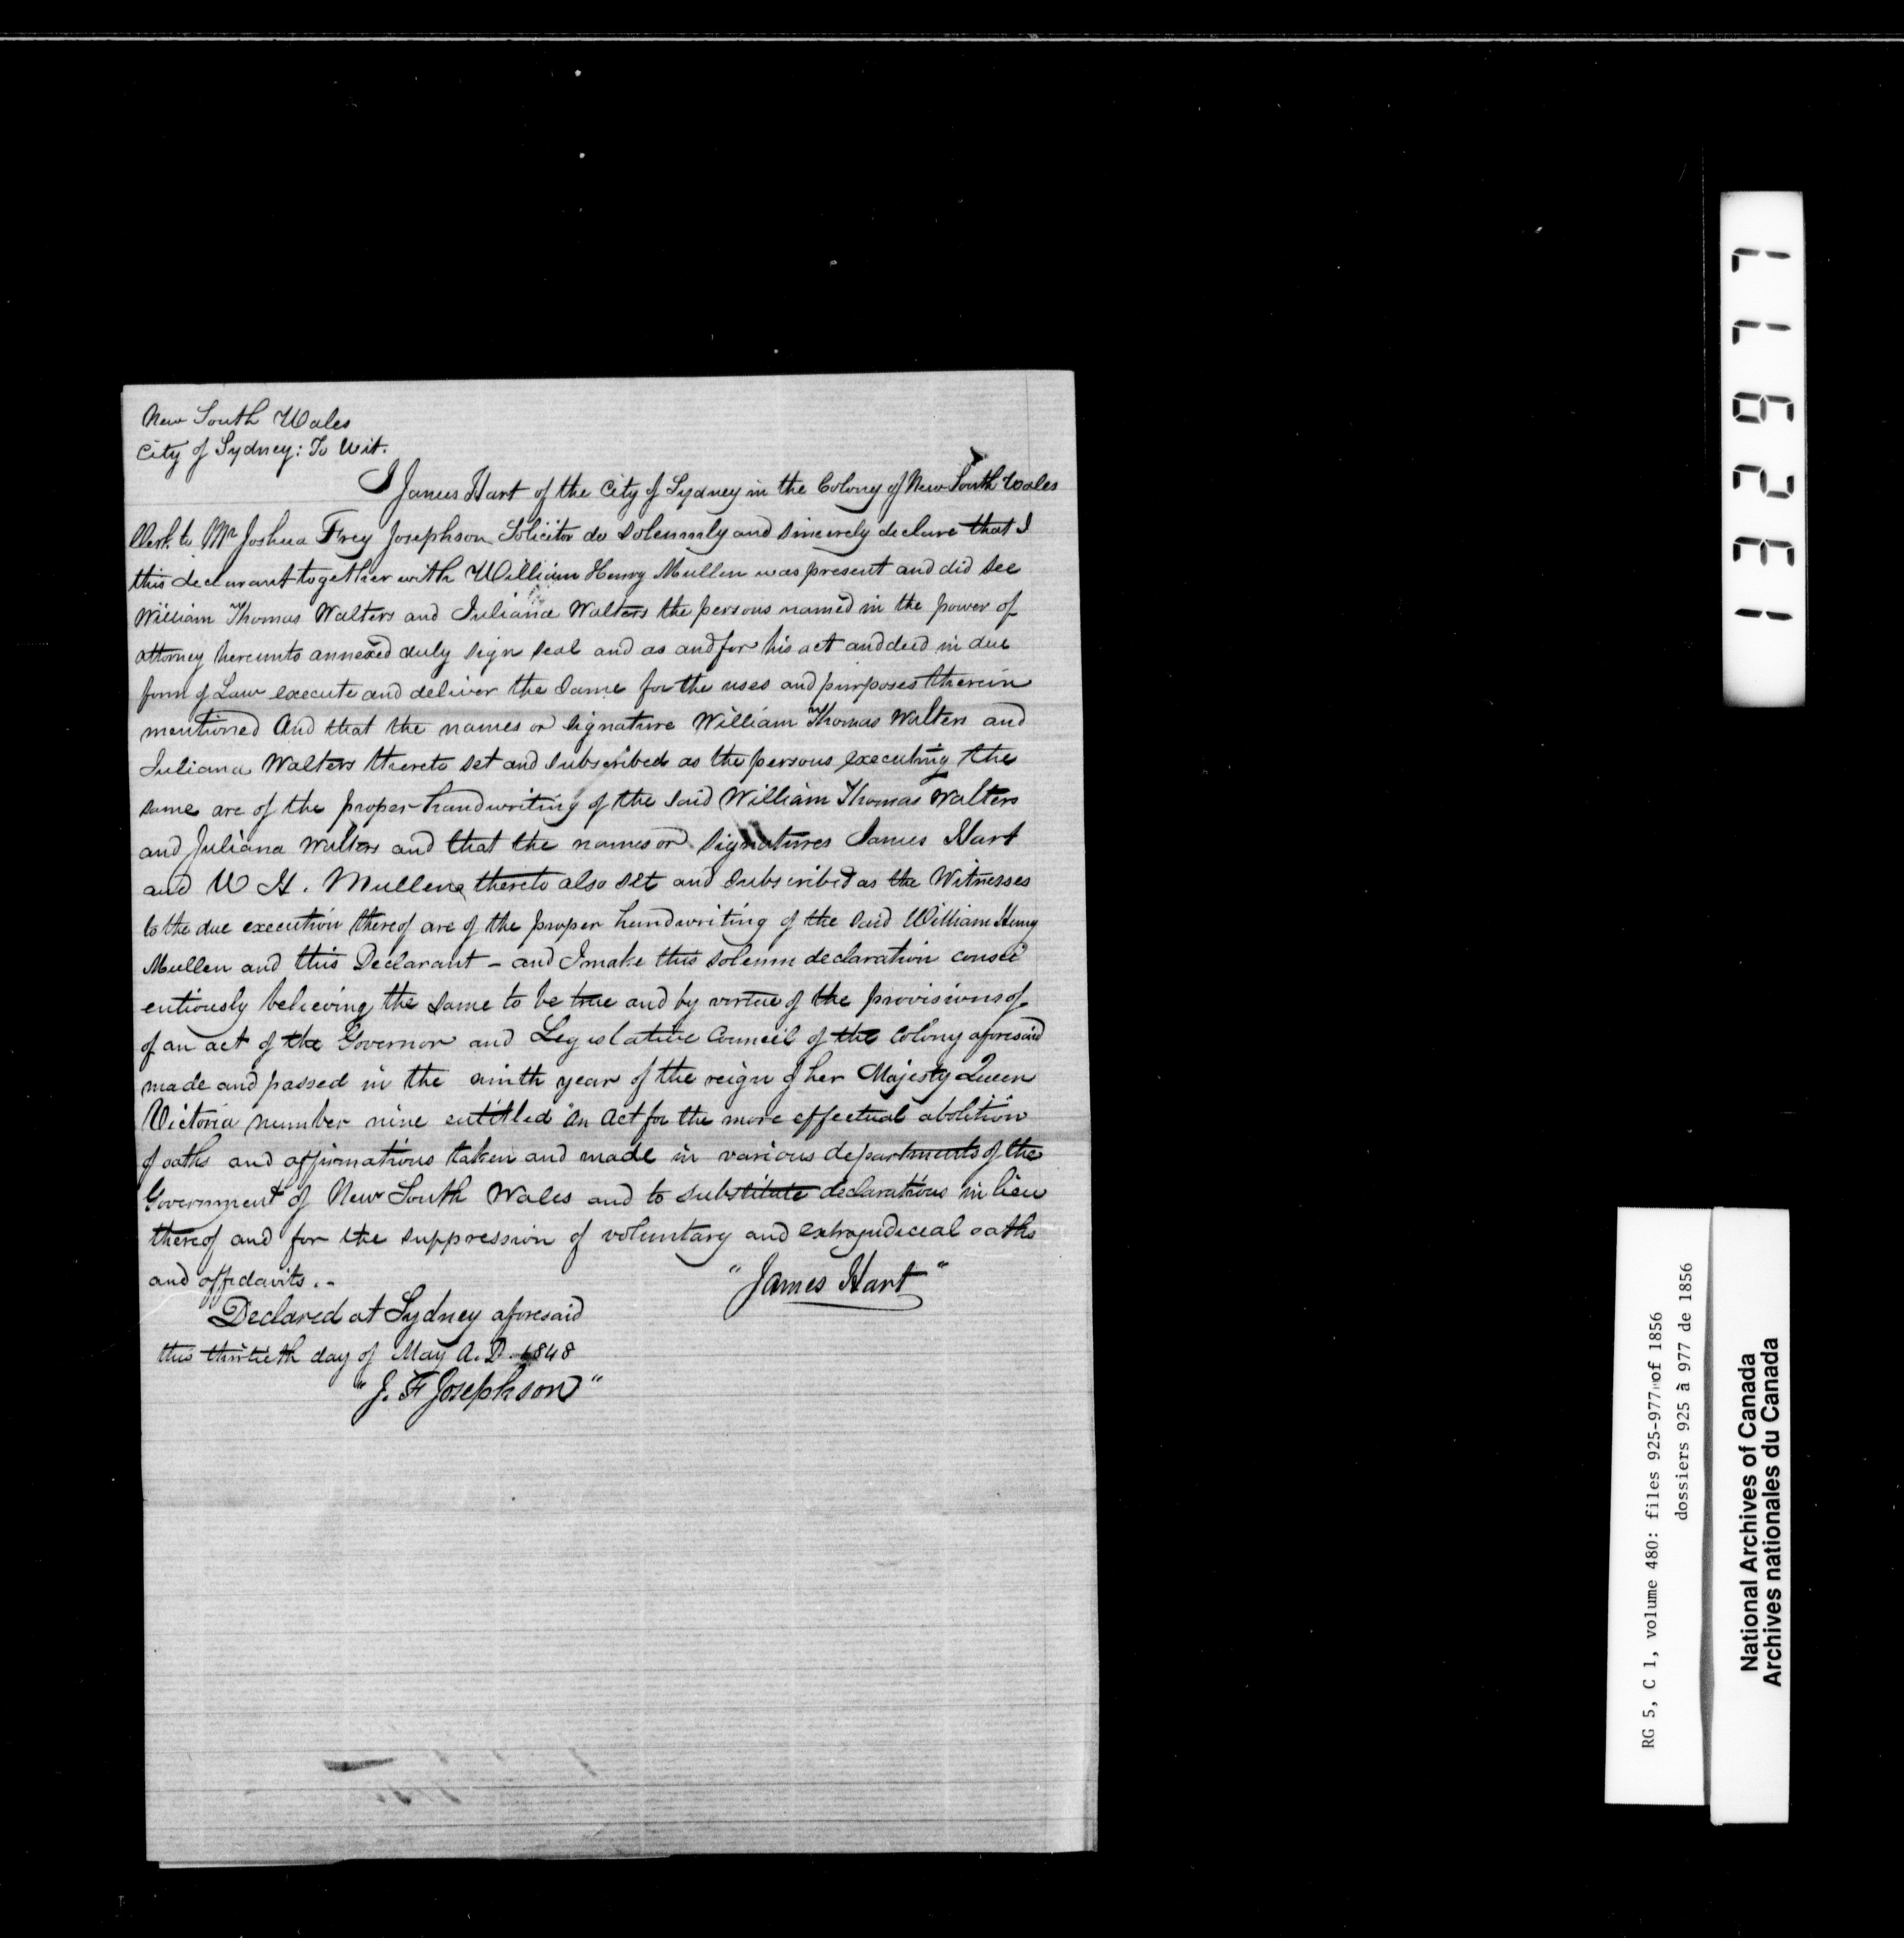 New South Wales
City of Sydney: To Wit.
I James Hart of the City of Sydney in the Colony of New South Wales
Clerk to Mr Joshua Frey Josephson Solicitor do solemnly and sincerely declare that I
this declarant together with William Henry Mullen was present and did see
William Thomas Walters and Juliana Walters the persons named in the power of
attorney hereunto annexed duly sign seal and as and for his act and deed in due
form of Law execute and deliver the same for the uses and purposes therein
mentioned And that the names or signature William Thomas Walters and
Juliana Walters thereto set and subscribed as the persons executing the
same are of the proper handwriting of the said William Thomas Walters
and Juliana Walters and that the names or signatures James Hart
and W H. Mullen thereto also set and subscribed as the Witnesses
to the due execution thereof are of the proper handwriting of the said William Henry
Mullen and this Declarant - and I make this solemn declaration consci
entiously believing the same to be true and by virtue of the provisions of
of an act of the Governor and Legislative Council of the Colony aforesaid
made and passed in the ninth year of the reign of her Majesty Queen
Victoria number nine entitled "An Act for the more effectual abolition
of oaths and affirmations taken and made in various departments of the
Government of New South Wales and to substitute declarations in lieu
thereof and for the suppression of voluntary and extrajudicial oaths
and affidavits. -
"James Hart"
Declared at Sydney aforesaid
this thirtieth day of May A.D. 1848
"J. F Josephson"
132977
RG 5, C 1, volume 480: files 925-977 of 1856
dossiers 925 à 977 de 1856
National Archives of Canada
Archives nationales du Canada